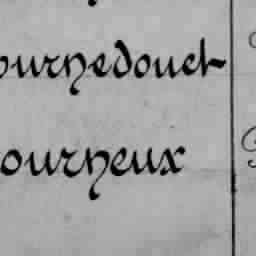 ournedouet
ourneux